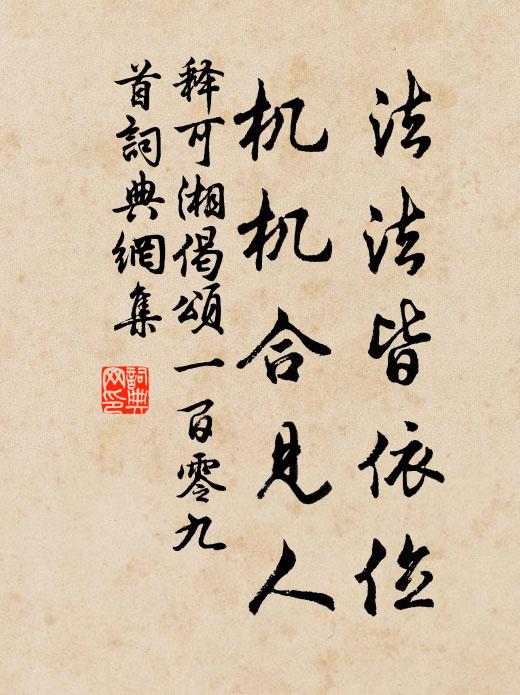 法法皆依位
机机合见人
释可湘偈颂一百零九
首詞典網集
詞典
网印